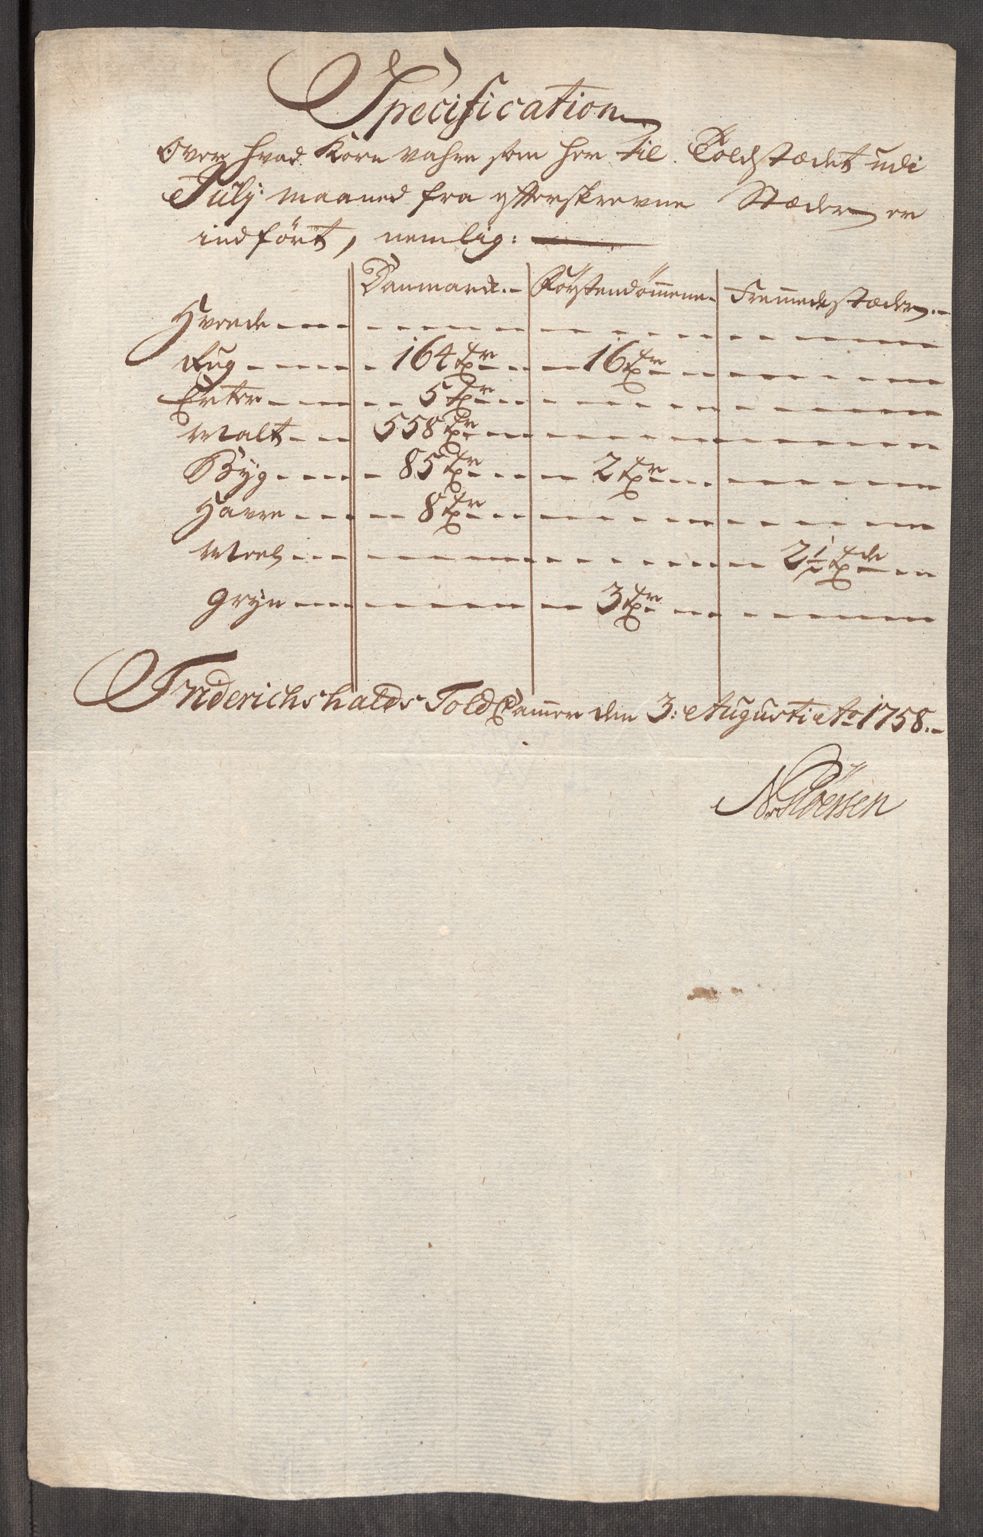 Specification
Over hvad Korn vahre som her til Toldstædet udi
Julij maaned fra efterskrevne Stæder er
indført, nemlig:
Danmarck. Förstendömmene. Fremmede stæder.
Hvede
Rug 164 Tr 16 Tr
Erter 5 Tr
Malt 558 Tr
Byg 85 Tr 2 Tr
Havre 8 Tr
Meel 2 1/2 Tde
Gryn 3 Tr
Friderichshalds Told Cammer den 3: Augusti Ao 1758.